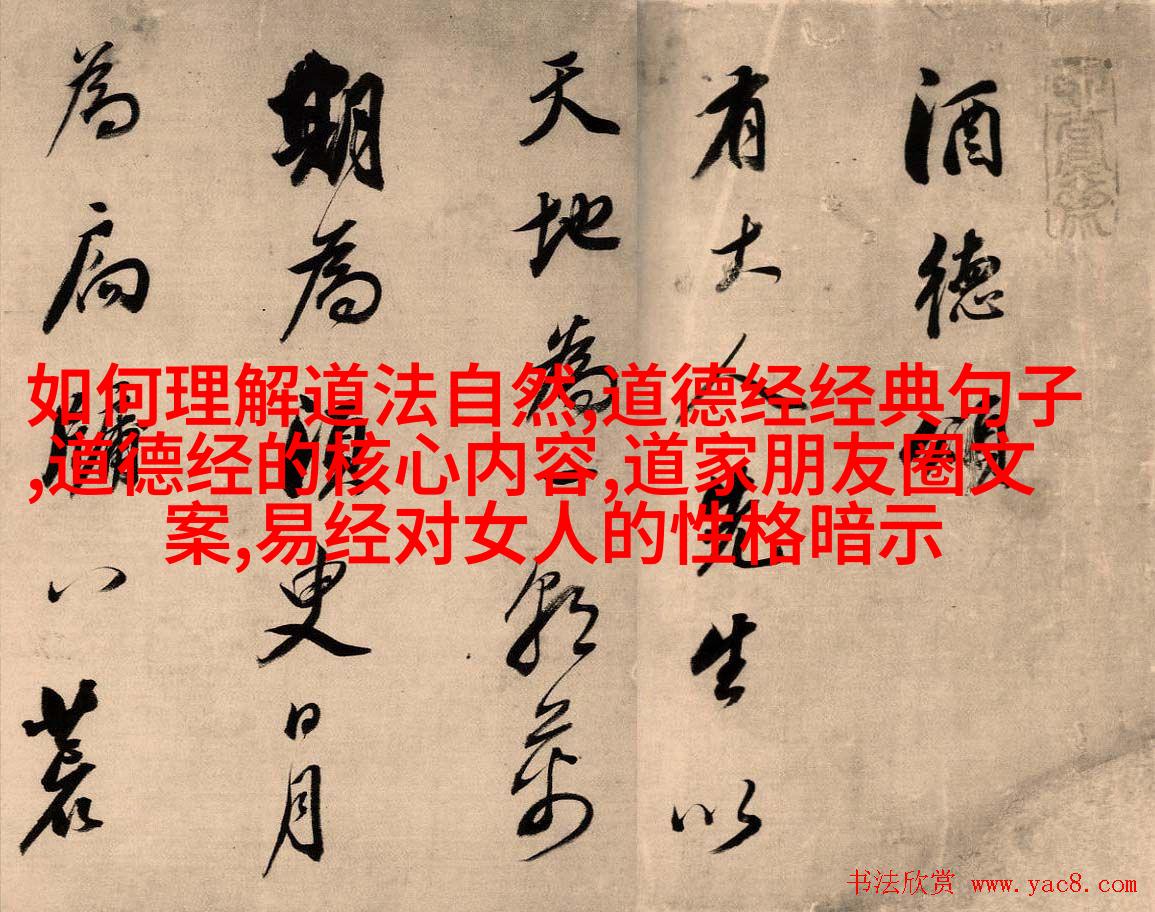 酒德頌
有大人先生以
天地為一朝萬
期為須臾日月
為扃牖八荒
如何理解道法自然,道德经经典句子
,道德经的核心内容,道家朋友圈文
案,易经对女人的性格暗示
书法欣赏 www.yac8.com